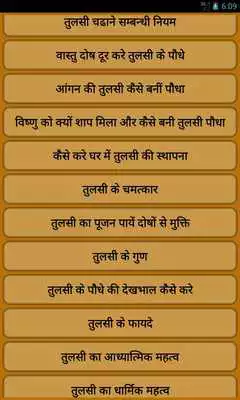 6:09
तुलसी चढाने सम्बन्धी नियम
वास्तु दोष दूर करे तुलसी के पौधे
आंगन की तुलसी कैसे बनीं पौधा
विष्णु को क्यों शाप मिला और कैसे बनी तुलसी पौधा
कैसे करे घर में तुलसी की स्थापना
तुलसी के चमत्कार
तुलसी का पूजन पायें दोषों से मुक्ति
तुलसी के गुण
तुलसी के पौधे की देखभाल कैसे करे
तुलसी के फायदे
तुलसी का आध्यात्मिक महत्व
तुलसी का धार्मिक महत्व